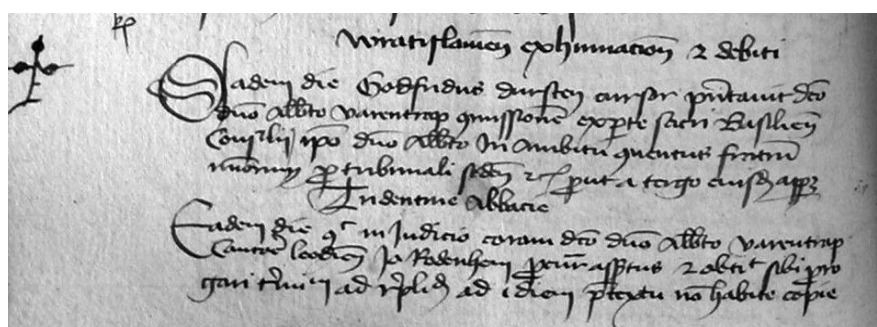 Wratislavien exhumacion & debiti
Eadem die Godfridus dursten cursor pntavit dco
dno Albto varentrap comissione exparte sacri Basilien
Consilij ipo dno Albto In Ambitu conventus fratru
minorum pro tribunali seden & prout a tergo eiusd appz
Tridentine Abbacie
Eadem die co in Judicio coram dco dno Albto varentrap
Cantore leodien Jo Rodenhem procur asstus & obtit sibi pro
gari tmin ad rplid ad idiem ptextu no habite copie